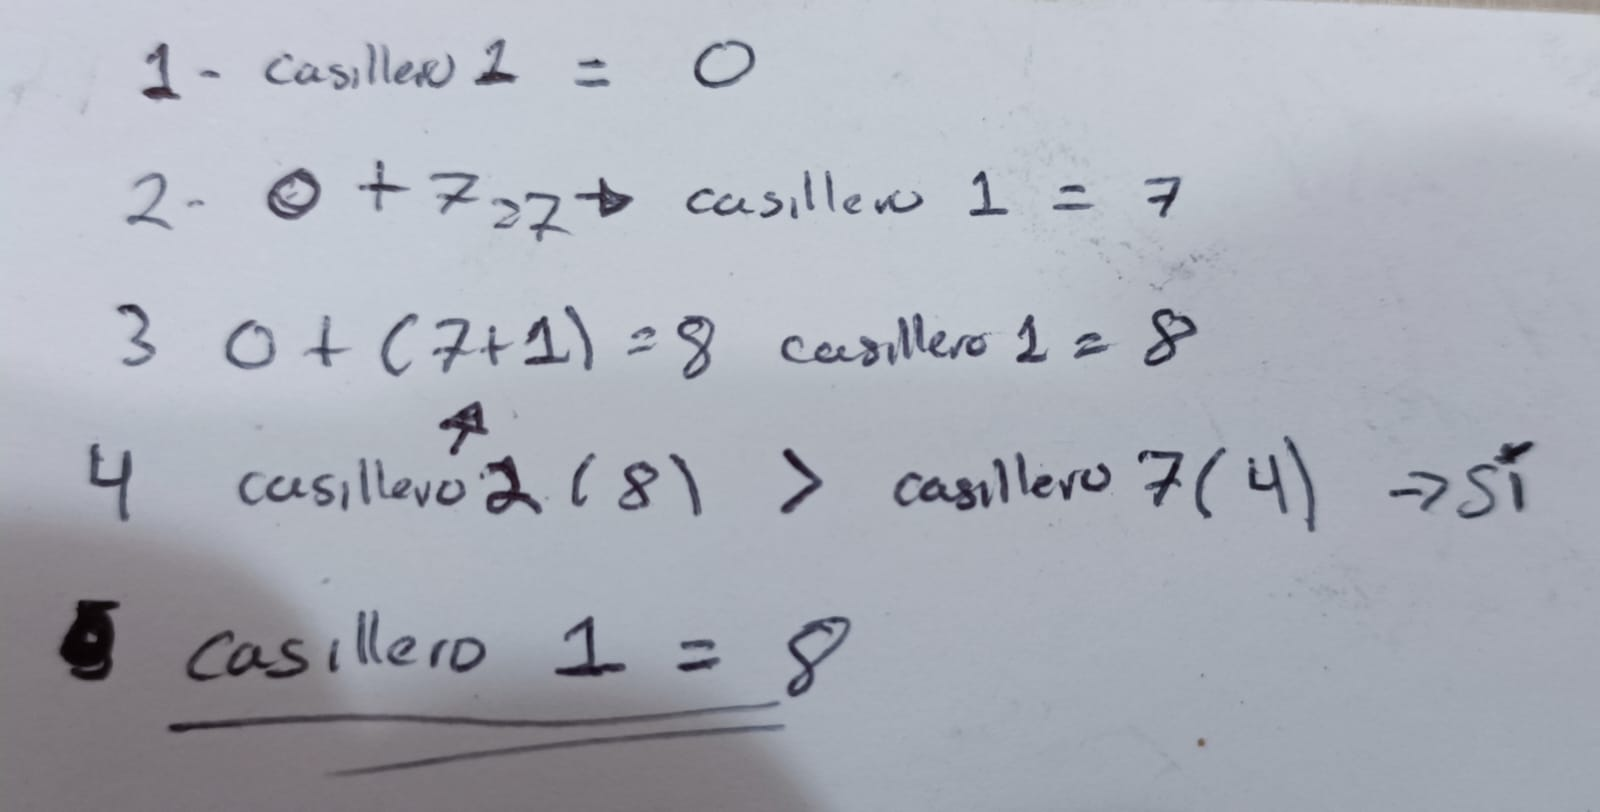 1- casillero 1 = 0
2- 0 + 7 = 7 → casillero 1 = 7
3 0 + (7+1) = 8 casillero 1 = 8
4 casillero 2 (8) > casillero 7 (4) → si
casillero 1 = 8